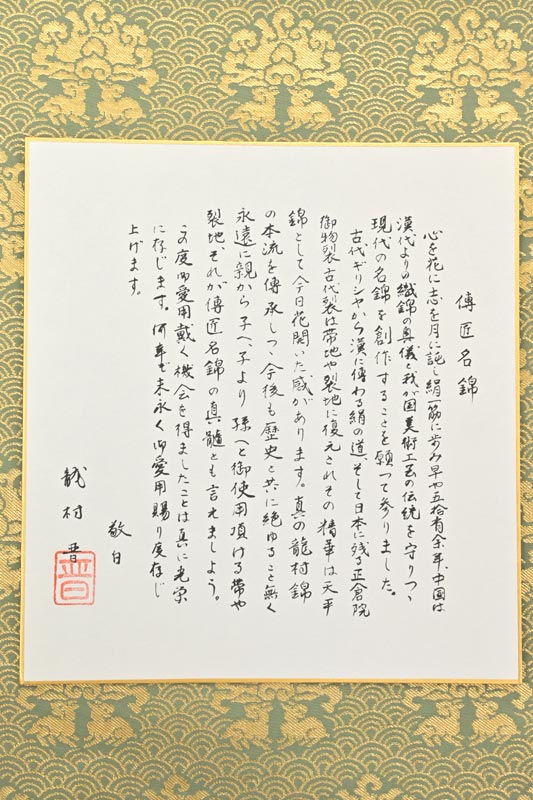 傳匠名錦
心を花に志を月に託し絹一筋に歩み早や五拾有余年、中國は
漢代よりの織錦の奥儀と我が国美術工芸の伝統を守りつゝ
現代の名錦を創作することを願って参りました。
古代ギリシヤから漢に傳わる絹の道そして日本に残る正倉院
御物裂古代裂は帯地や裂地に復元されその精華は天平
錦として今日花開いた感があります。真の龍村錦
の本流を傳承しつゝ今後も歴史と共に絶ゆること無く
永遠に親から子へ、子より孫へと御使用頂ける帯や
裂地それが傳匠名錦の真髄とも言えましよう。
この度御愛用戴く機会を得ましたことは真に光栄
に存じます。何卒末永く御愛用賜り度存じ
上げます。
敬白
龍村晋
晋